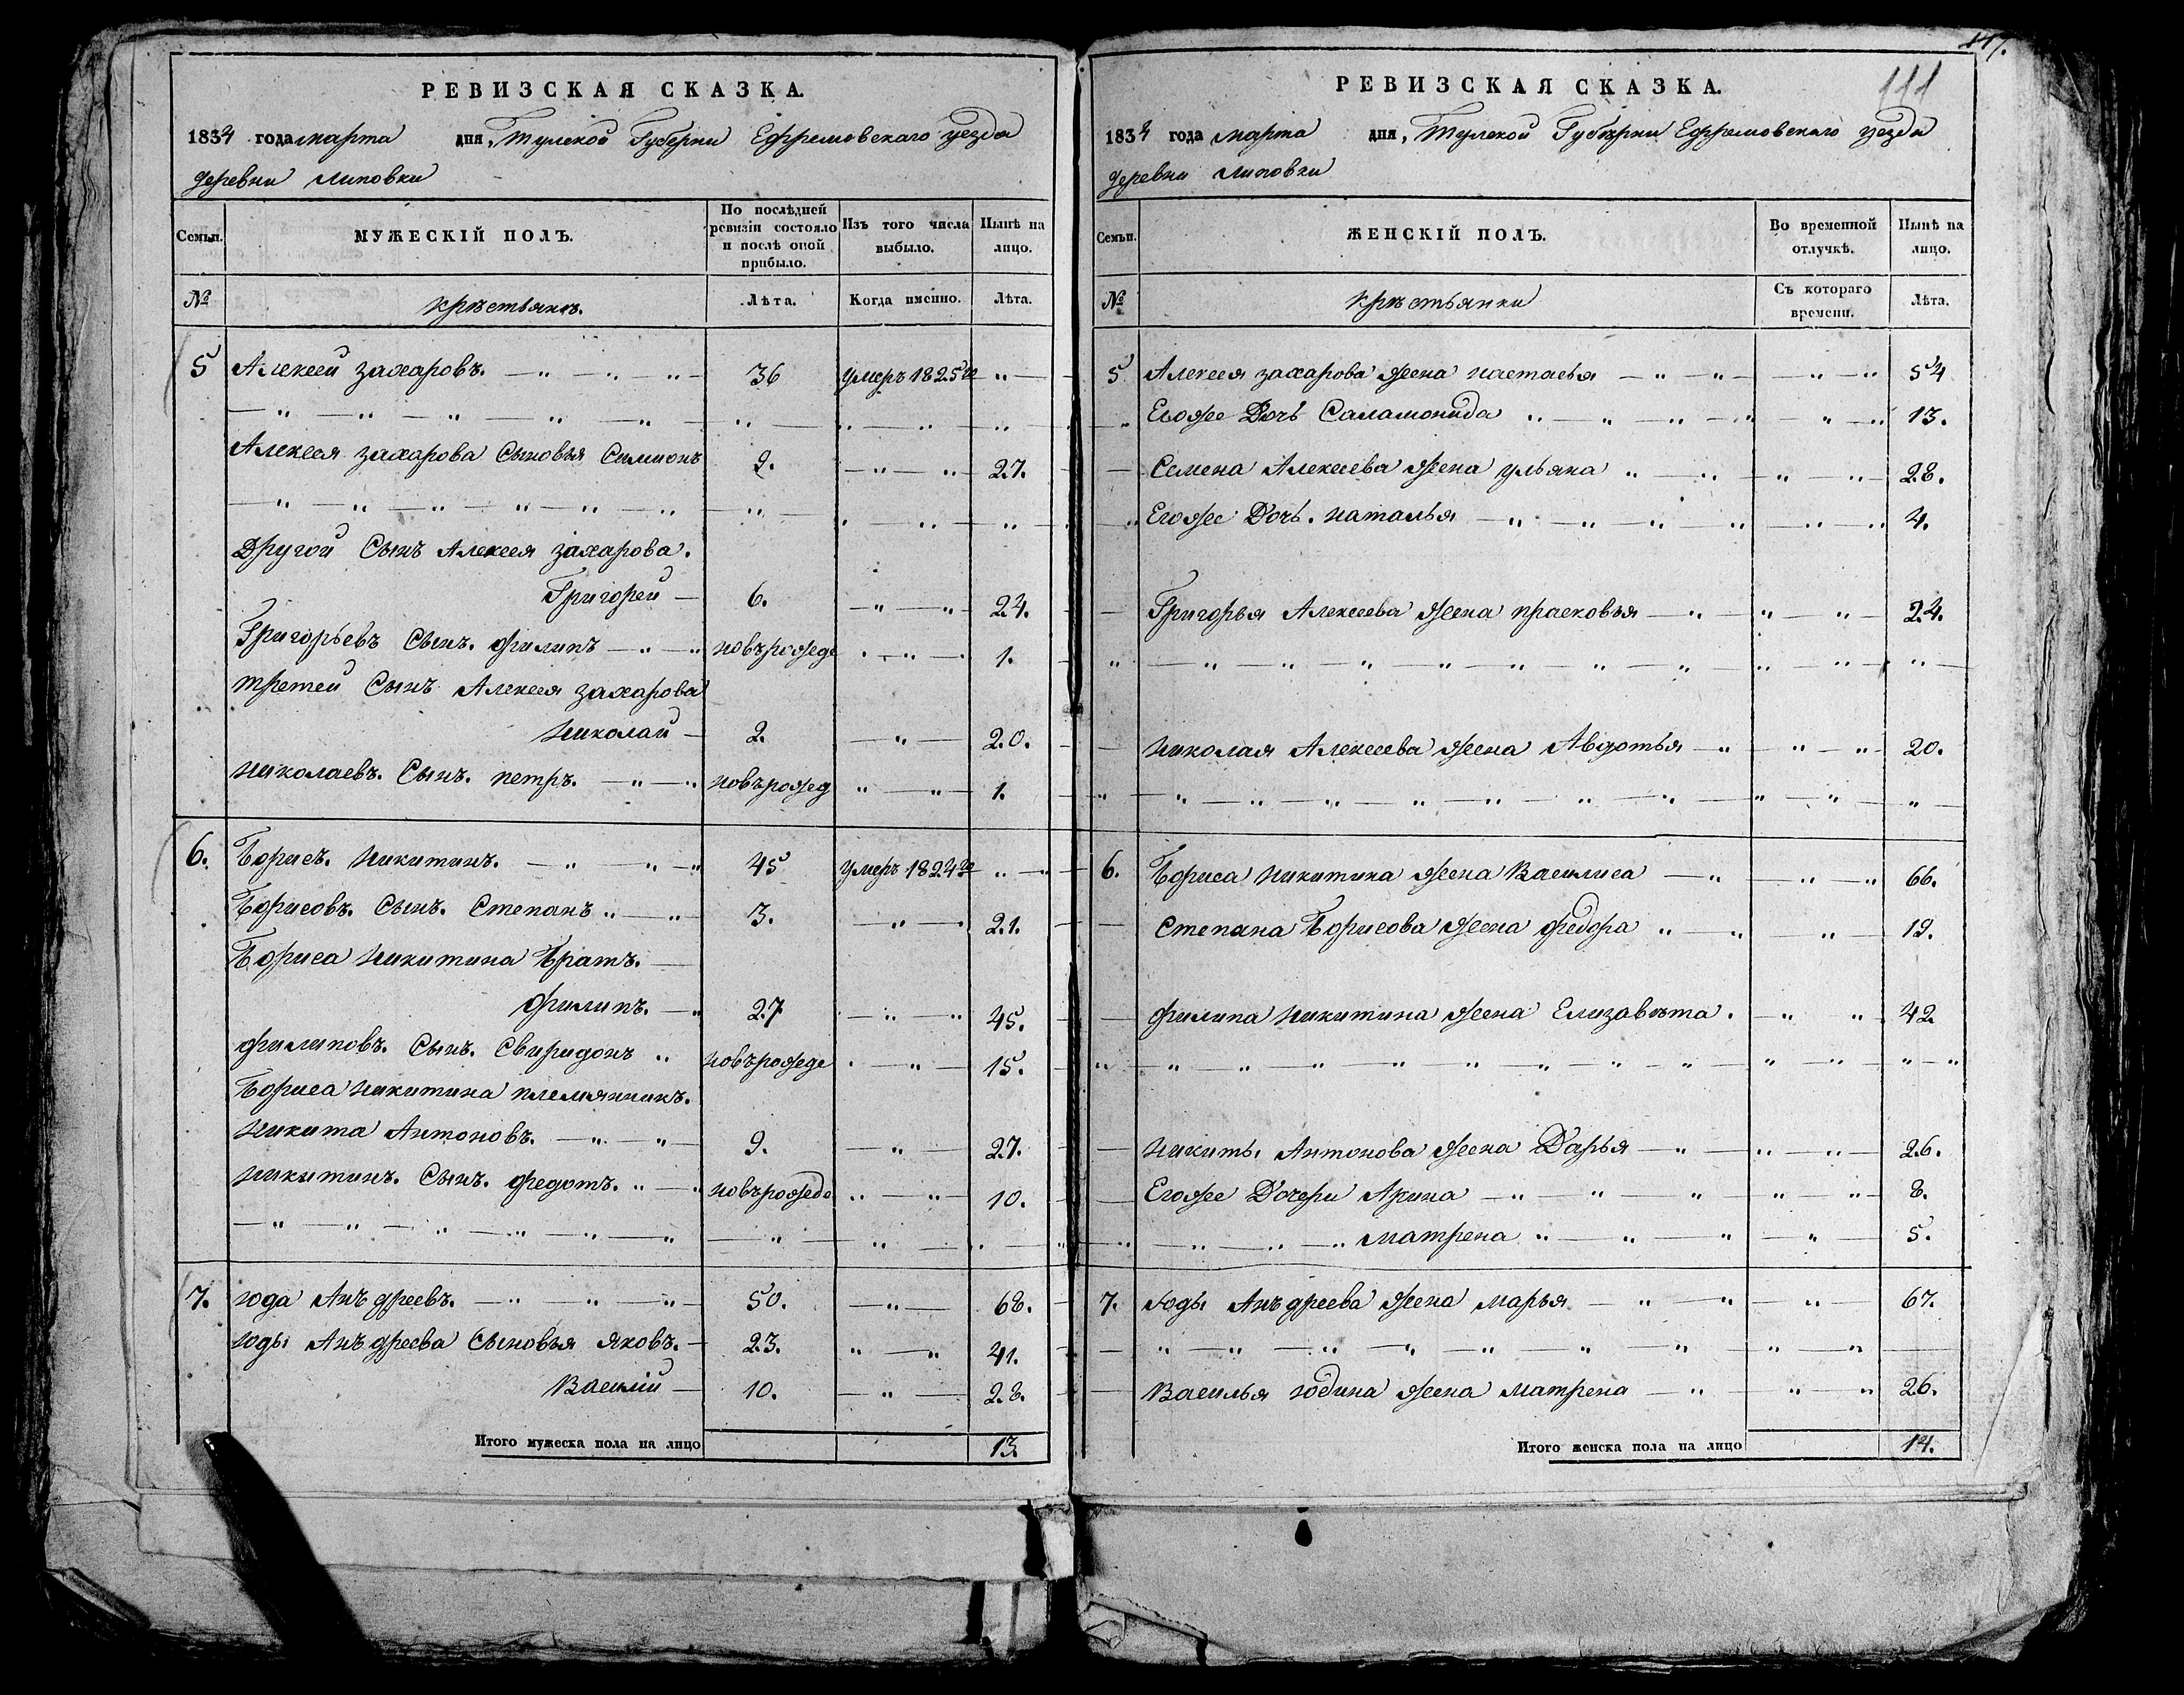 РЕВИЗСКАЯ СКАЗКА.
1834 года марта дня, Тулской Губерни Ефремовскаго уезда
деревни липовки
Семьи. МУЖЕСКІЙ ПОЛЪ. По послѣдней ревизіи состояло и послѣ оной прибыло. Изъ того числа выбыло. Нынѣ на лицо.
№ крѣстьянѣ. Лѣта. Когда именно. Лѣта.
5 Алексей захаровъ. 36 умеръ 1825го
Алексея захарова Сыновья Симионъ 9. 27.
Другой Сынъ Алексея захарова.
Григорей 6. 24.
Григорьевъ Сынъ. филипъ новърожде 1.
третей Сынъ Алексея захарова
николай 2. 20.
николаевъ. Сынъ. петръ. новърожд 1.
6. Борисъ. никитинъ. 45 умеръ 1824го
Борисовъ. Сынъ. Степанъ 3. 21.
Бориса никитина Братъ.
филипъ. 27 45.
филиповъ. Сынъ. Свиридонъ новърожде 15.
Бориса никитина племянникъ.
никита Антоновъ. 9. 27.
никитинъ. Сынъ. федотъ. новърождо 10.
7. юда Анъдреевъ. 50. 68.
юды Анъдреева Сыновья яковъ. 23. 41.
Василій 10. 28.
Итого мужеска пола на лицо 13.
117.
111
РЕВИЗСКАЯ СКАЗКА.
1834 года марта дня, Тулской Губѣрни Ефремовскаго уезда
деревни липовки
Семьи. ЖЕНСКІЙ ПОЛЪ. Во временной отлучкѣ. Нынѣ на лицо.
№ крѣстьянки Съ котораго времени. Лѣта.
5 Алексея захарова жена настасья 54
Егоже Дочь Саламонида 13.
Семена Алексеева жена ульяна 28.
Егоже Дочь. наталья 4.
Григорья Алексеева жена прасковья 24.
николая Алексеева жена Авдотья 20.
6. Бориса никитина жена Василиса 66.
Степана Борисова жена федора 19.
филипа никитина жена Елизавѣта. 42
никиты Антонова жена Дарья 26.
Егоже Дочери Арина 8.
матрена 5.
7. юды Анъдреева жена марья 67.
Василья юдина жена матрена 26.
Итого женска пола на лицо 14.